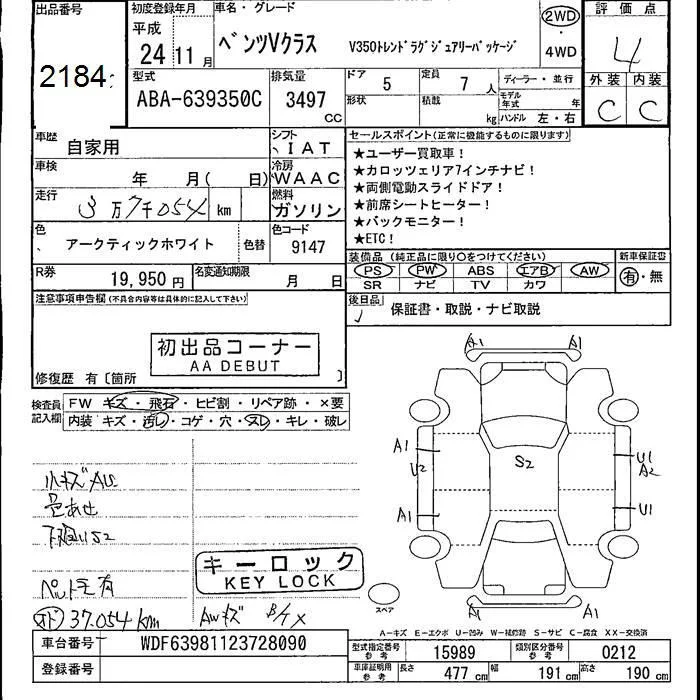 出品番号 初度登録年月 車名・グレード 2WD 評価点
平成
24 11月 ベンツVクラス V350トレンドラグジュアリーパッケージ 4WD 4
2184
型式 排気量 ドア 5 定員 7人 ディーラー・並行 外装 内装
ABA-639350C 3497cc 形状 積載 kg モデル年式 年 ハンドル 左・右 C C
車歴 自家用 シフト IAT セールスポイント(正常に機能するものに限ります)
車検 年 月( 日) 冷房 WAAC
走行 3万7千054 km 燃料 ガソリン
★ユーザー買取車!
★カロッツェリア7インチナビ!
★両側電動スライドドア!
★前席シートヒーター!
★バックモニター!
★ETC!
色 アークティックホワイト 色替 色コード 9147
装備品(純正品に限り○をつけてください) 新車保証書
PS PW ABS エアB AW 有・無
SR ナビ TV カワ
R券 19,950円 名変通知期限 月 日
後日品 保証書・取説・ナビ取説
注意事項申告欄(不具合内容等は具体的に記入して下さい)
初出品コーナー
AA DEBUT
修復歴 有〔箇所 〕
検査員記入欄 FW キズ・飛石・ヒビ割・リペア跡・×要
内装 キズ・汚し・コゲ・穴・スレ・キレ・破レ
A1 A1
A1 U2 S2 U1 A2
A1 U1
A1 A1
小キズAU
色あせ
下廻りS2
キーロック
KEY LOCK
ペット毛有
37.054km AWキズ
スペア
A-キズ E-エクボ U-凹み W-補修跡 S-サビ C-腐食 XX-交換済
車台番号 WDF63981123728090 型式指定番号 参考 15989 類別区分番号 参考 0212
登録番号 車庫証明用 参考 長さ 477cm 幅 191cm 高さ 190cm